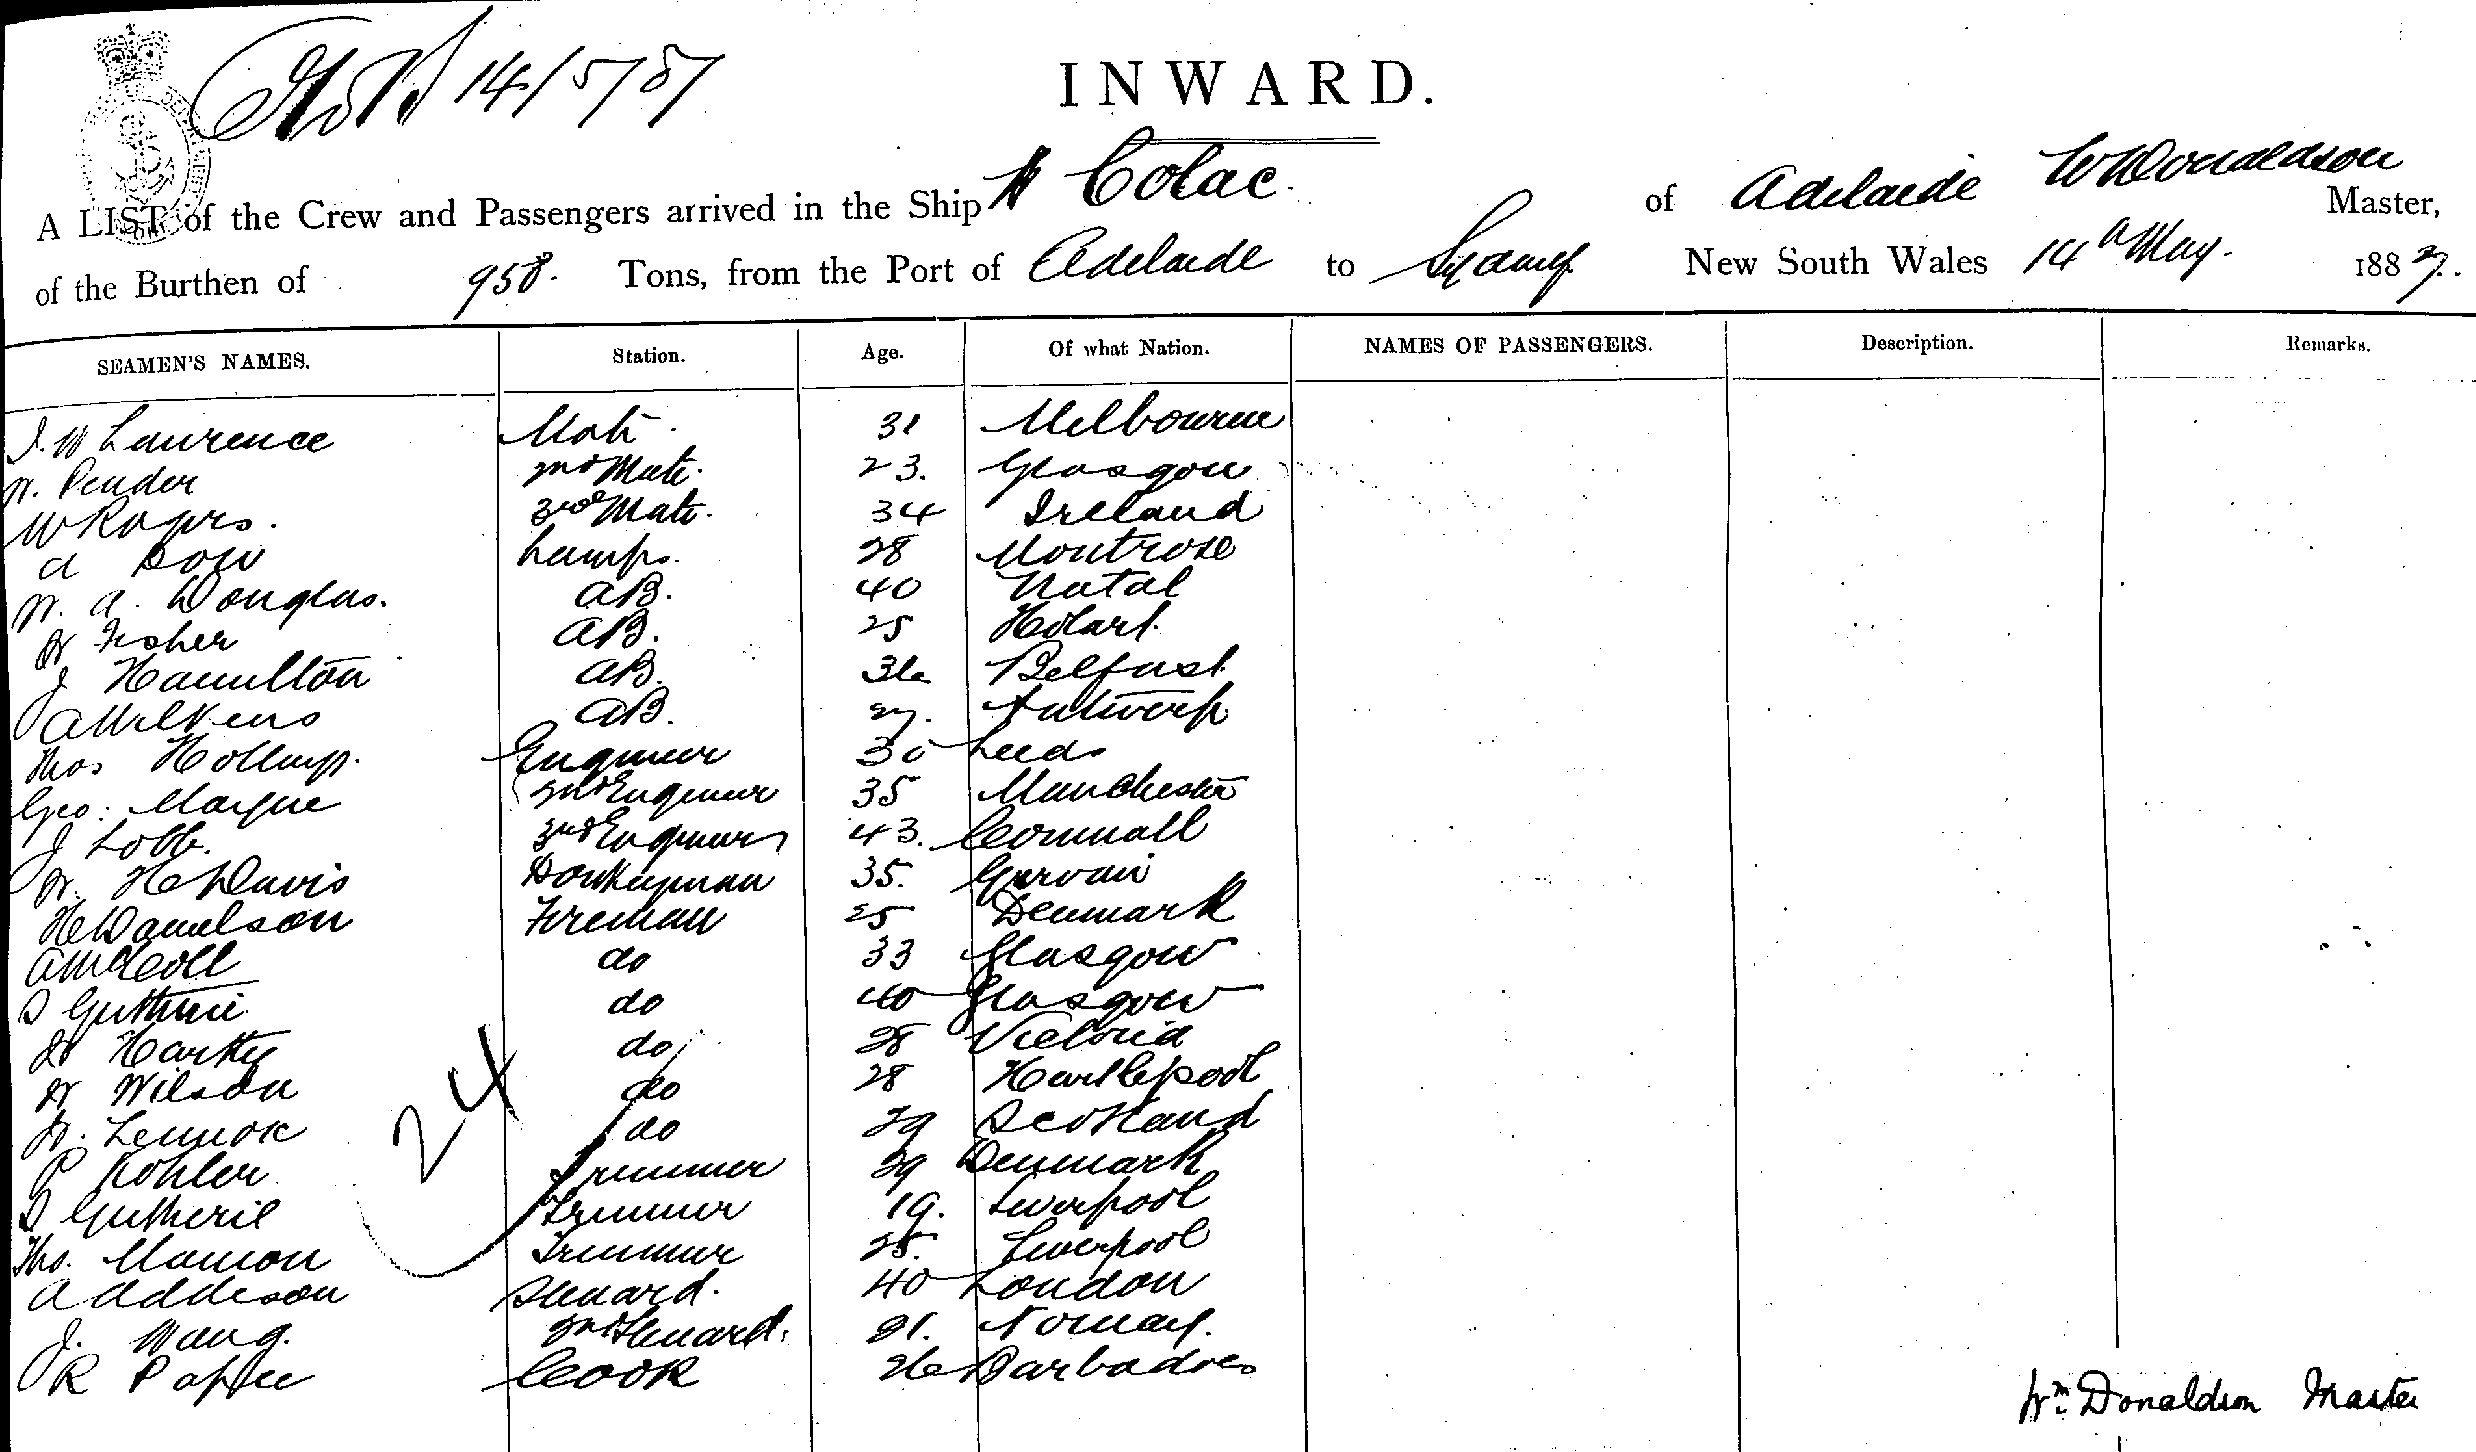 14/5/87
INWARD.
A LIST of the Crew and Passengers arrived in the Ship Colac of Adelaide W Donaldson Master,
of the Burthen of 958. Tons, from the Port of Adelaide to Sydney New South Wales 14th May. 1887.
SEAMEN'S NAMES. Station. Age. Of what Nation. NAMES OF PASSENGERS. Description. Remarks.
J. W Lawrence Mate 31 Melbourne
W. Pender 2nd Mate. 23. Glasgow
W 3rd Mate. 34 Ireland
A Dow Lamps. 28 Montrose
W. A. Douglas. AB. 40 Natal
W Fisher AB. 25 Hobart.
J Hamilton AB. 36 Belfast
A Wilkens AB. 27. Antwerp
Thos Engineer 30 Leeds
Geo: Mayne 2nd Engineer 35 Manchester
J Lobb. 3rd Engineer 43. Cornwall
W. H Davis Donkeyman 35. Girvan
H Danielson Fireman 25 Denmark
A McColl do 33 Glasgow
D Guthrie do 40 Glasgow
Harty do 28 Victoria
W Wilson do 28 Hartlepool
W. Lennox do 29 Scotland
P Kohler Trimmer 29 Denmark
D Gutherie Trimmer 19. Liverpool
Tho. Manion Trimmer 25. Liverpool
A Addison Steward. 40 London
J. Wang. 2nd Steward. 21. Norway.
R Cook 26 Barbadoes
24
Wm. Donaldson Master